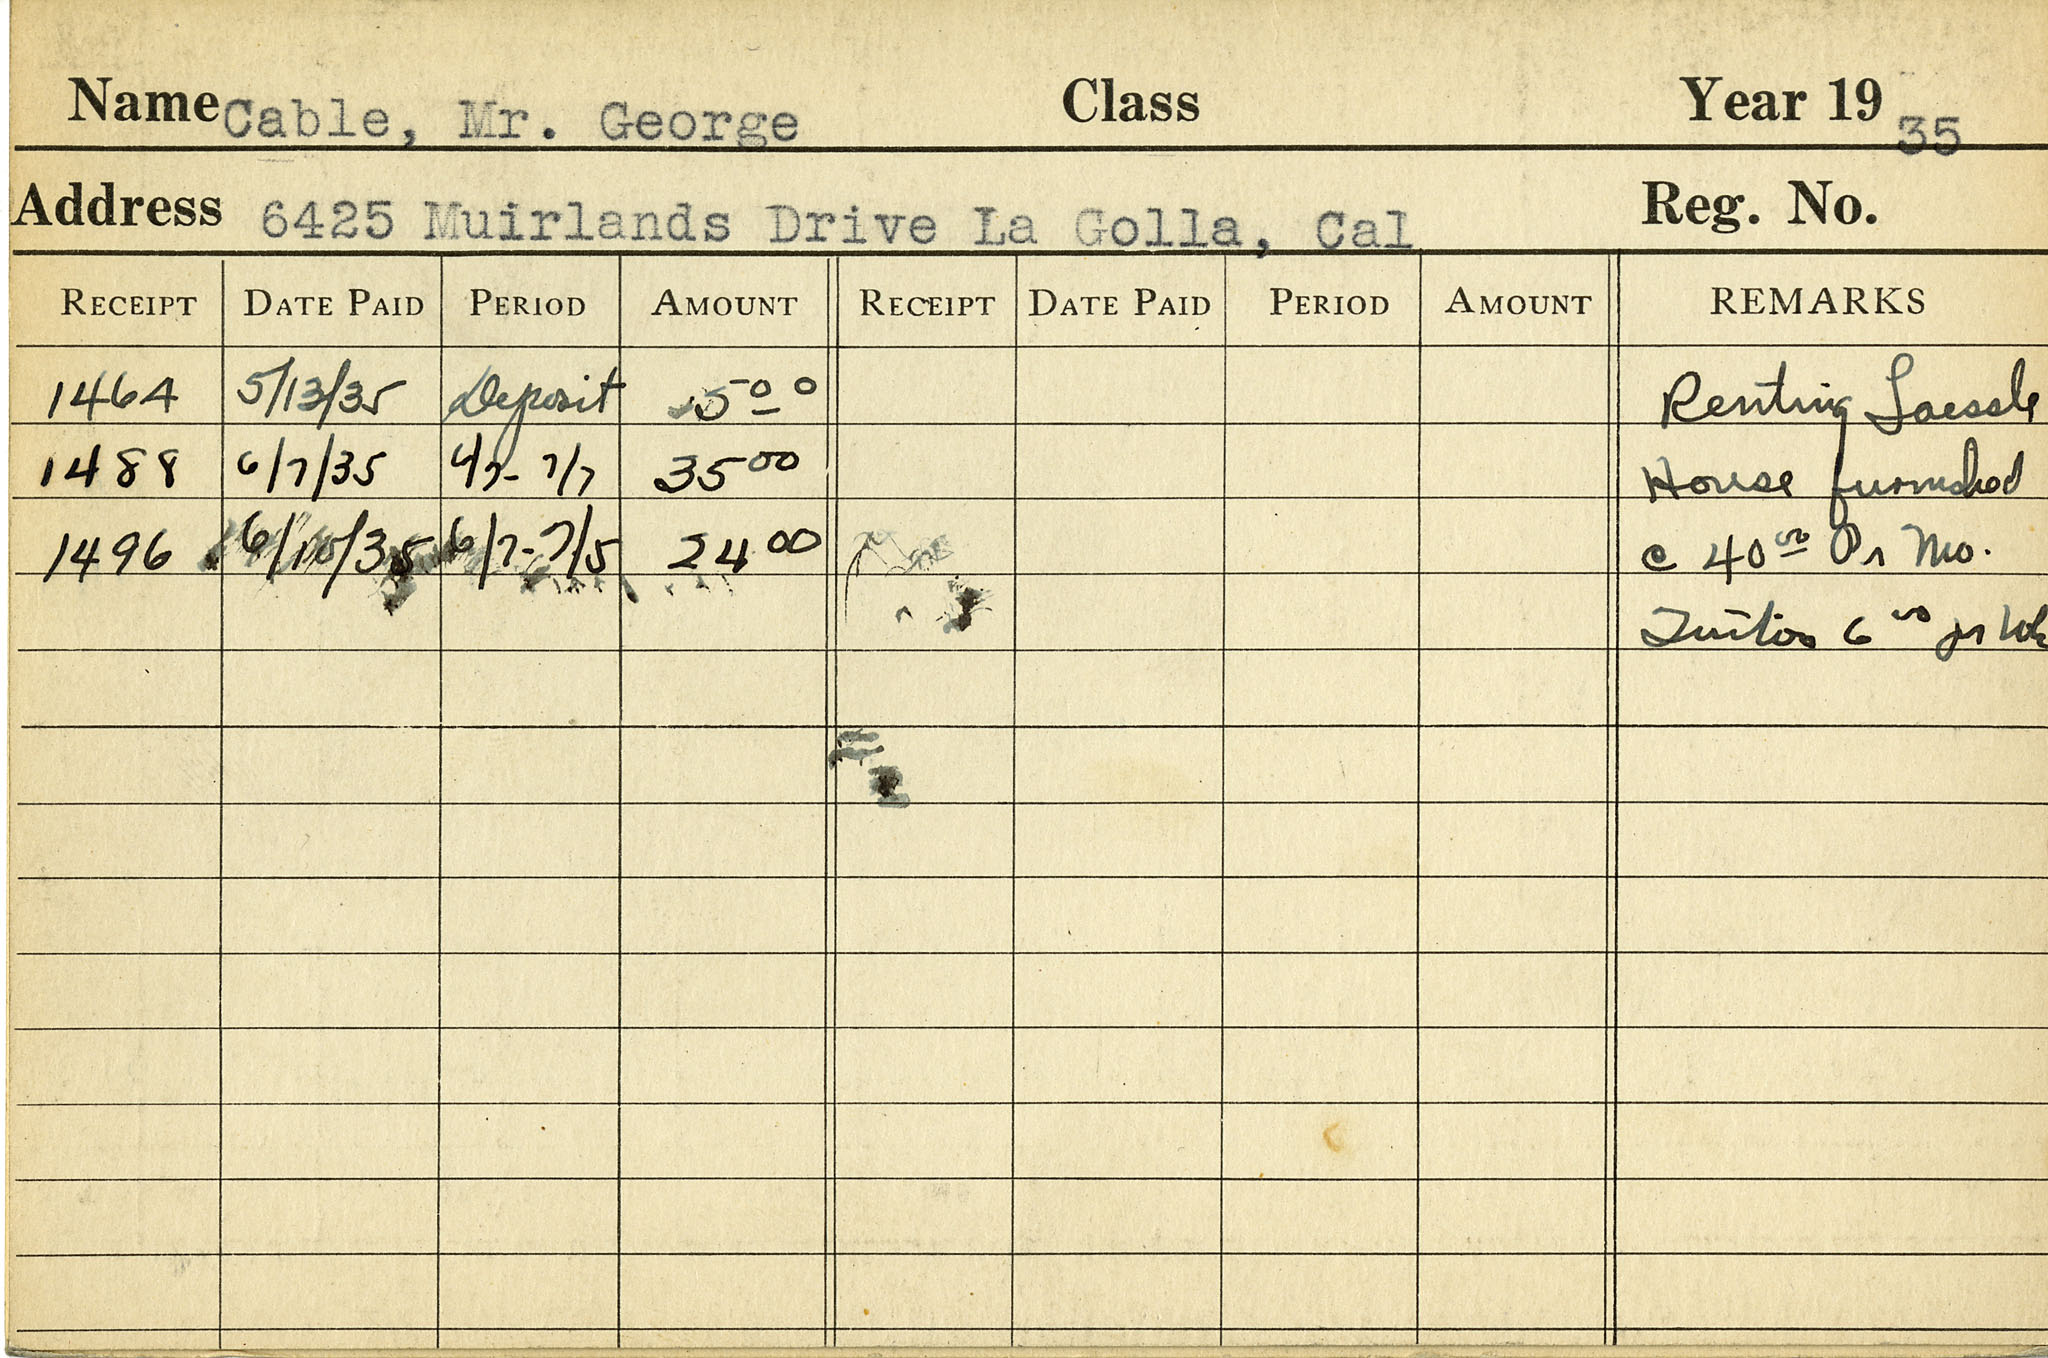 Name Cable, Mr. George Class Year 19 35
Address 6425 Muirlands Drive La Golla, Cal Reg. No.
RECEIPT DATE PAID PERIOD AMOUNT RECEIPT DATE PAID PERIOD AMOUNT REMARKS
1464 5/13/35 Deposit 5 00 Renting Loessle
1488 6/7/35 6/7- 7/7 35 00 House furnished
1496 6/10/35 6/7-7/5 24 00 @ 40 00 Pr Mo.
Tuition 6 00 pr Wk